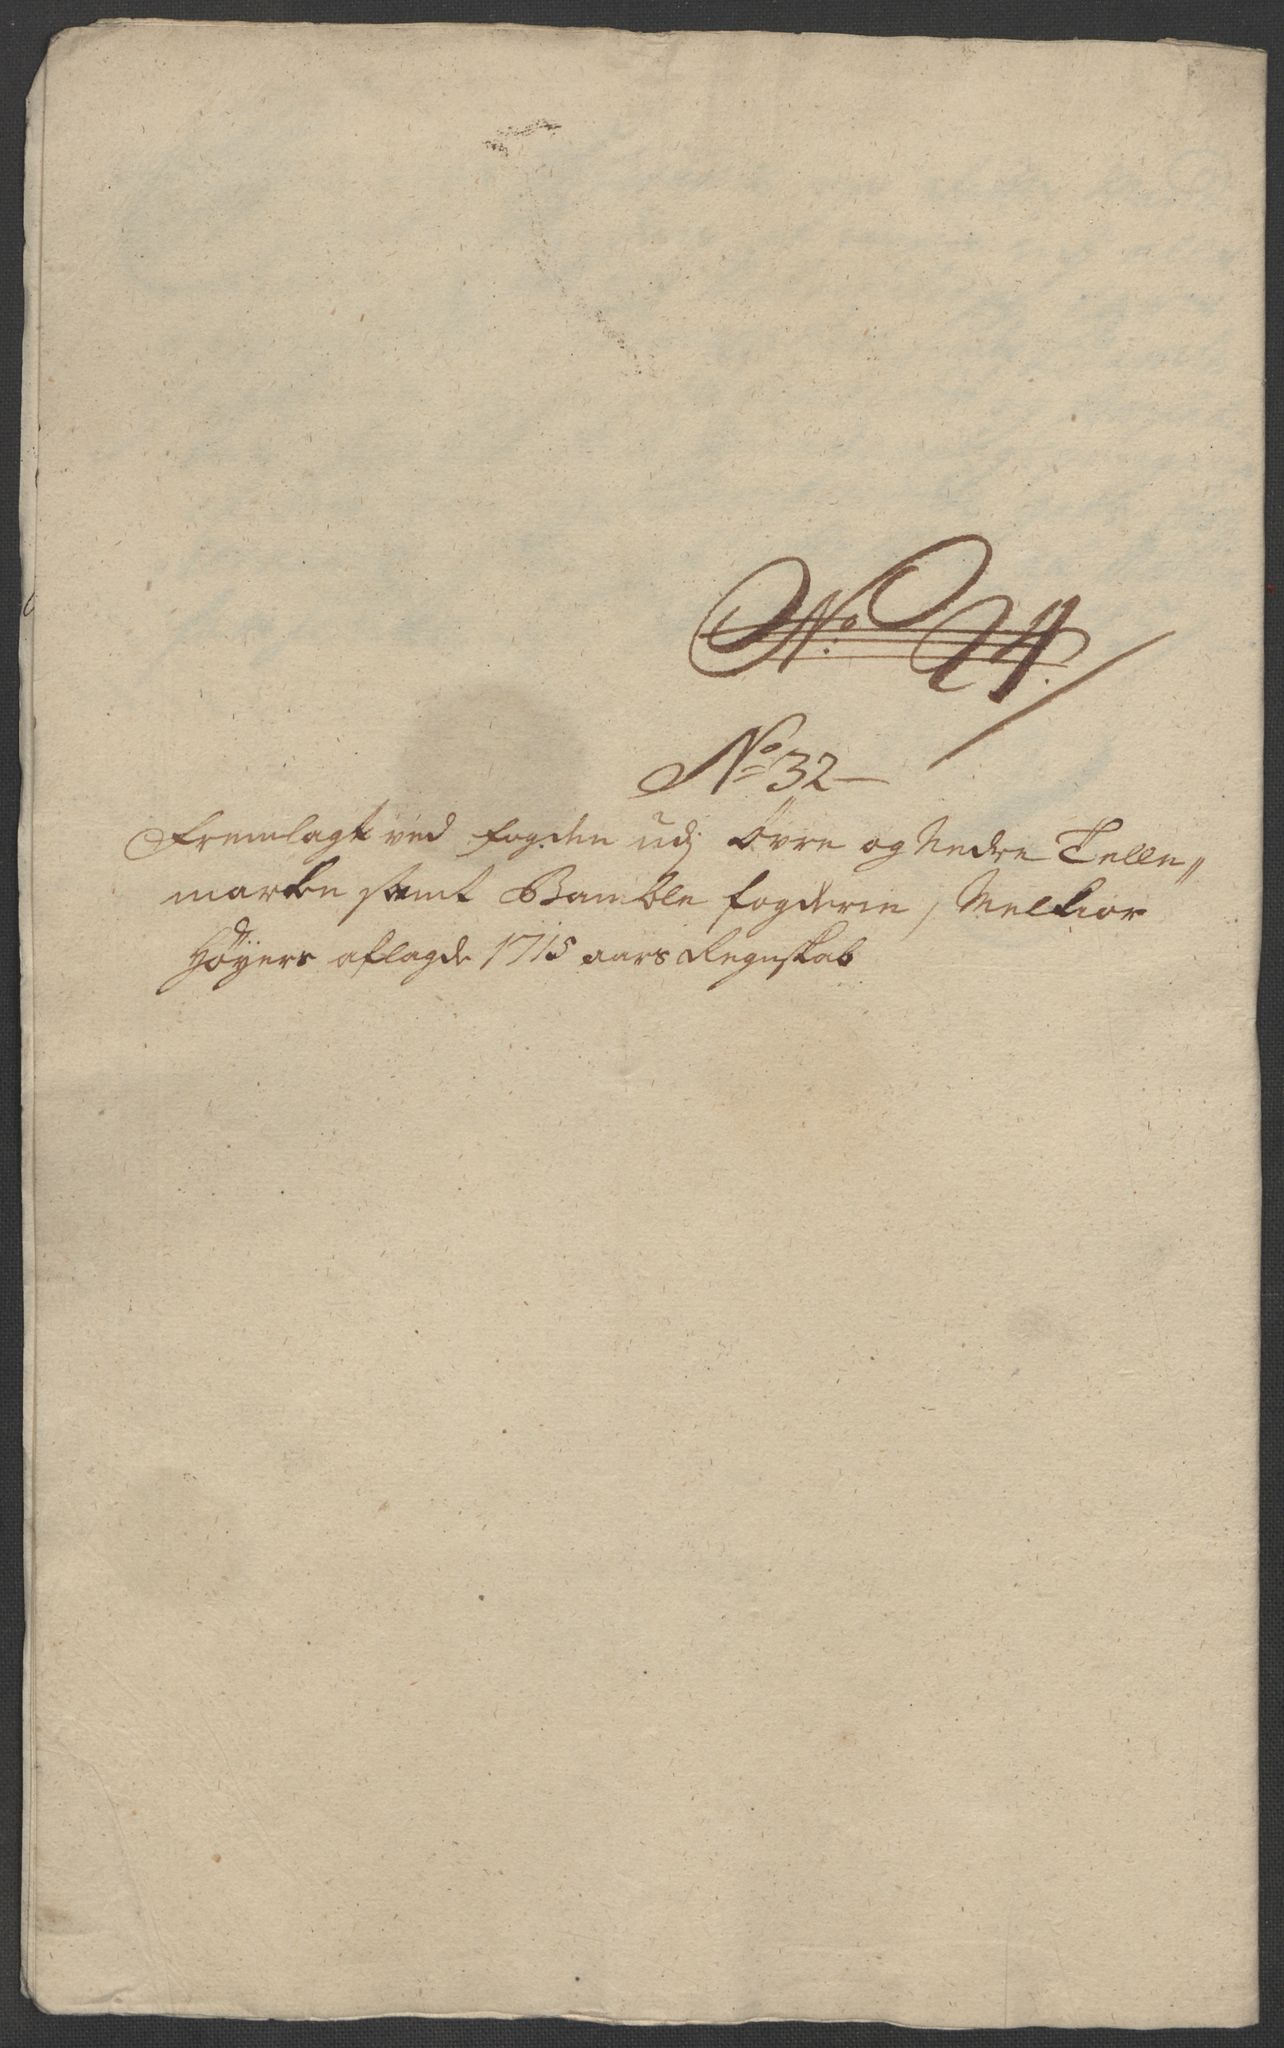 No. 24.
No 32
Fremlagt ved fogden udj Øvre og Nedre Telle„
marken samt Bamble fogderie, Melkior
Høyers aflagde 1715 aars Regnskab